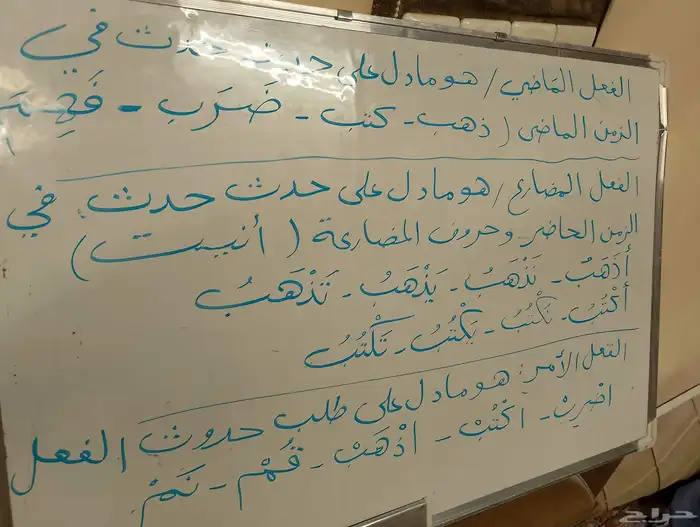 الفعل الماضي / هو ما دل على حدث حدث في
الزمن الماضي ( ذهب - كتب - ضَرَب - فَهِمَ
الفعل المضارع / هو ما دل على حدث حدث في
الزمن الحاضر وحروف المضارعة ( أنيت )
أَذهَبُ - نَذْهَبُ - يَذْهَبُ - تَذْهَبُ
أَكْتُبُ - نَكْتُبُ - يَكْتُبُ - تَكْتُبُ
الفعل الأمر : هو ما دل على طلب حدوث الفعل
اضْرِبْ - اكْتُبْ - اذْهَبْ - قُمْ - نَمْ
حراج